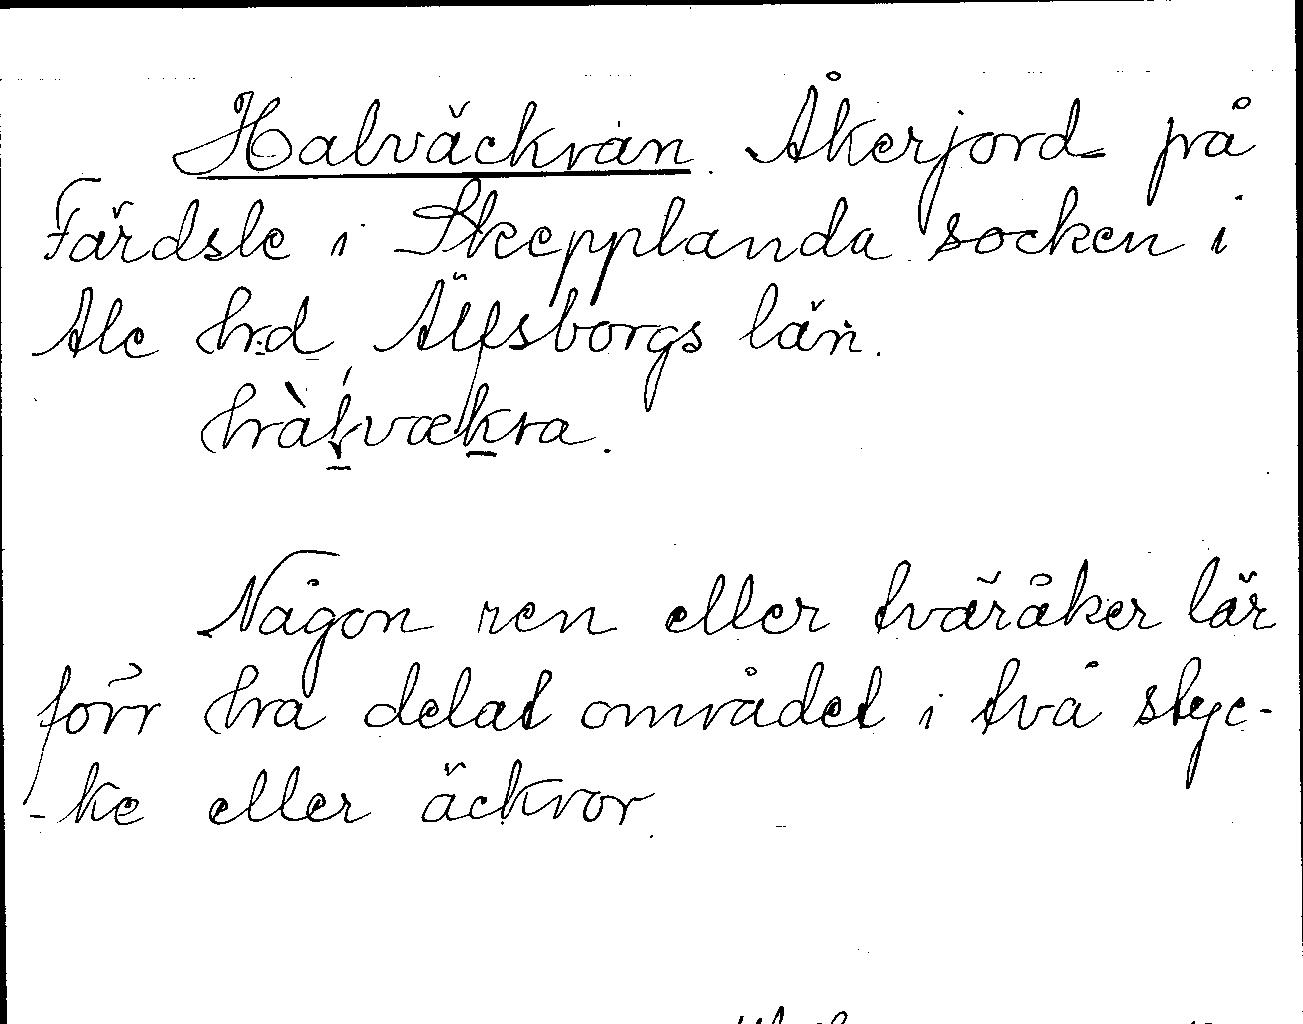 Halväckran. Åkerjord på
Färdsle i Skepplanda socken i
Ale hd, Älfsborgs län.
hàlvækra.
Någon ren eller tväråker lär
förr ha delat området i två styc-
-ke eller äckror.